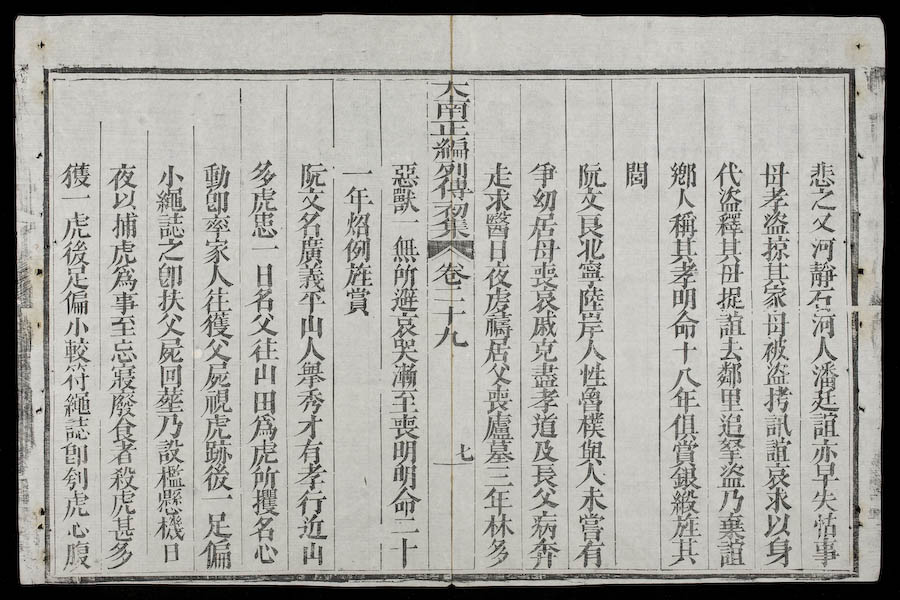 悲之又河靜石河人潘廷誼亦早失怙事
母孝盜掠其家母被盜拷訊誼哀求以身
代盜釋其母捉誼去鄰里追拏盜乃棄誼
鄉人稱其孝明命十八年俱賞銀緞旌其
閭
阮文良北寧陸岸人性魯樸與人未嘗有
爭幼居母喪哀戚克盡孝道及長父病奔
走求醫日夜虔禱居父喪廬墓三年林多
大南正編列傳初集 卷二十九 九
惡獸一無所避哀哭漸至喪明明命二十
一年炤例旌賞
阮文名廣義平山人舉秀才有孝行近山
多虎忠一日名父往山田為虎所攫名心
動卽率家人往獲父屍視虎跡後一足偏
小繩誌之卽扶父屍回塟乃設檻懸機日
夜以捕虎爲事至忘寢廢食者殺虎甚多
獲一虎後足偏小較符繩誌卽刳虎心腹